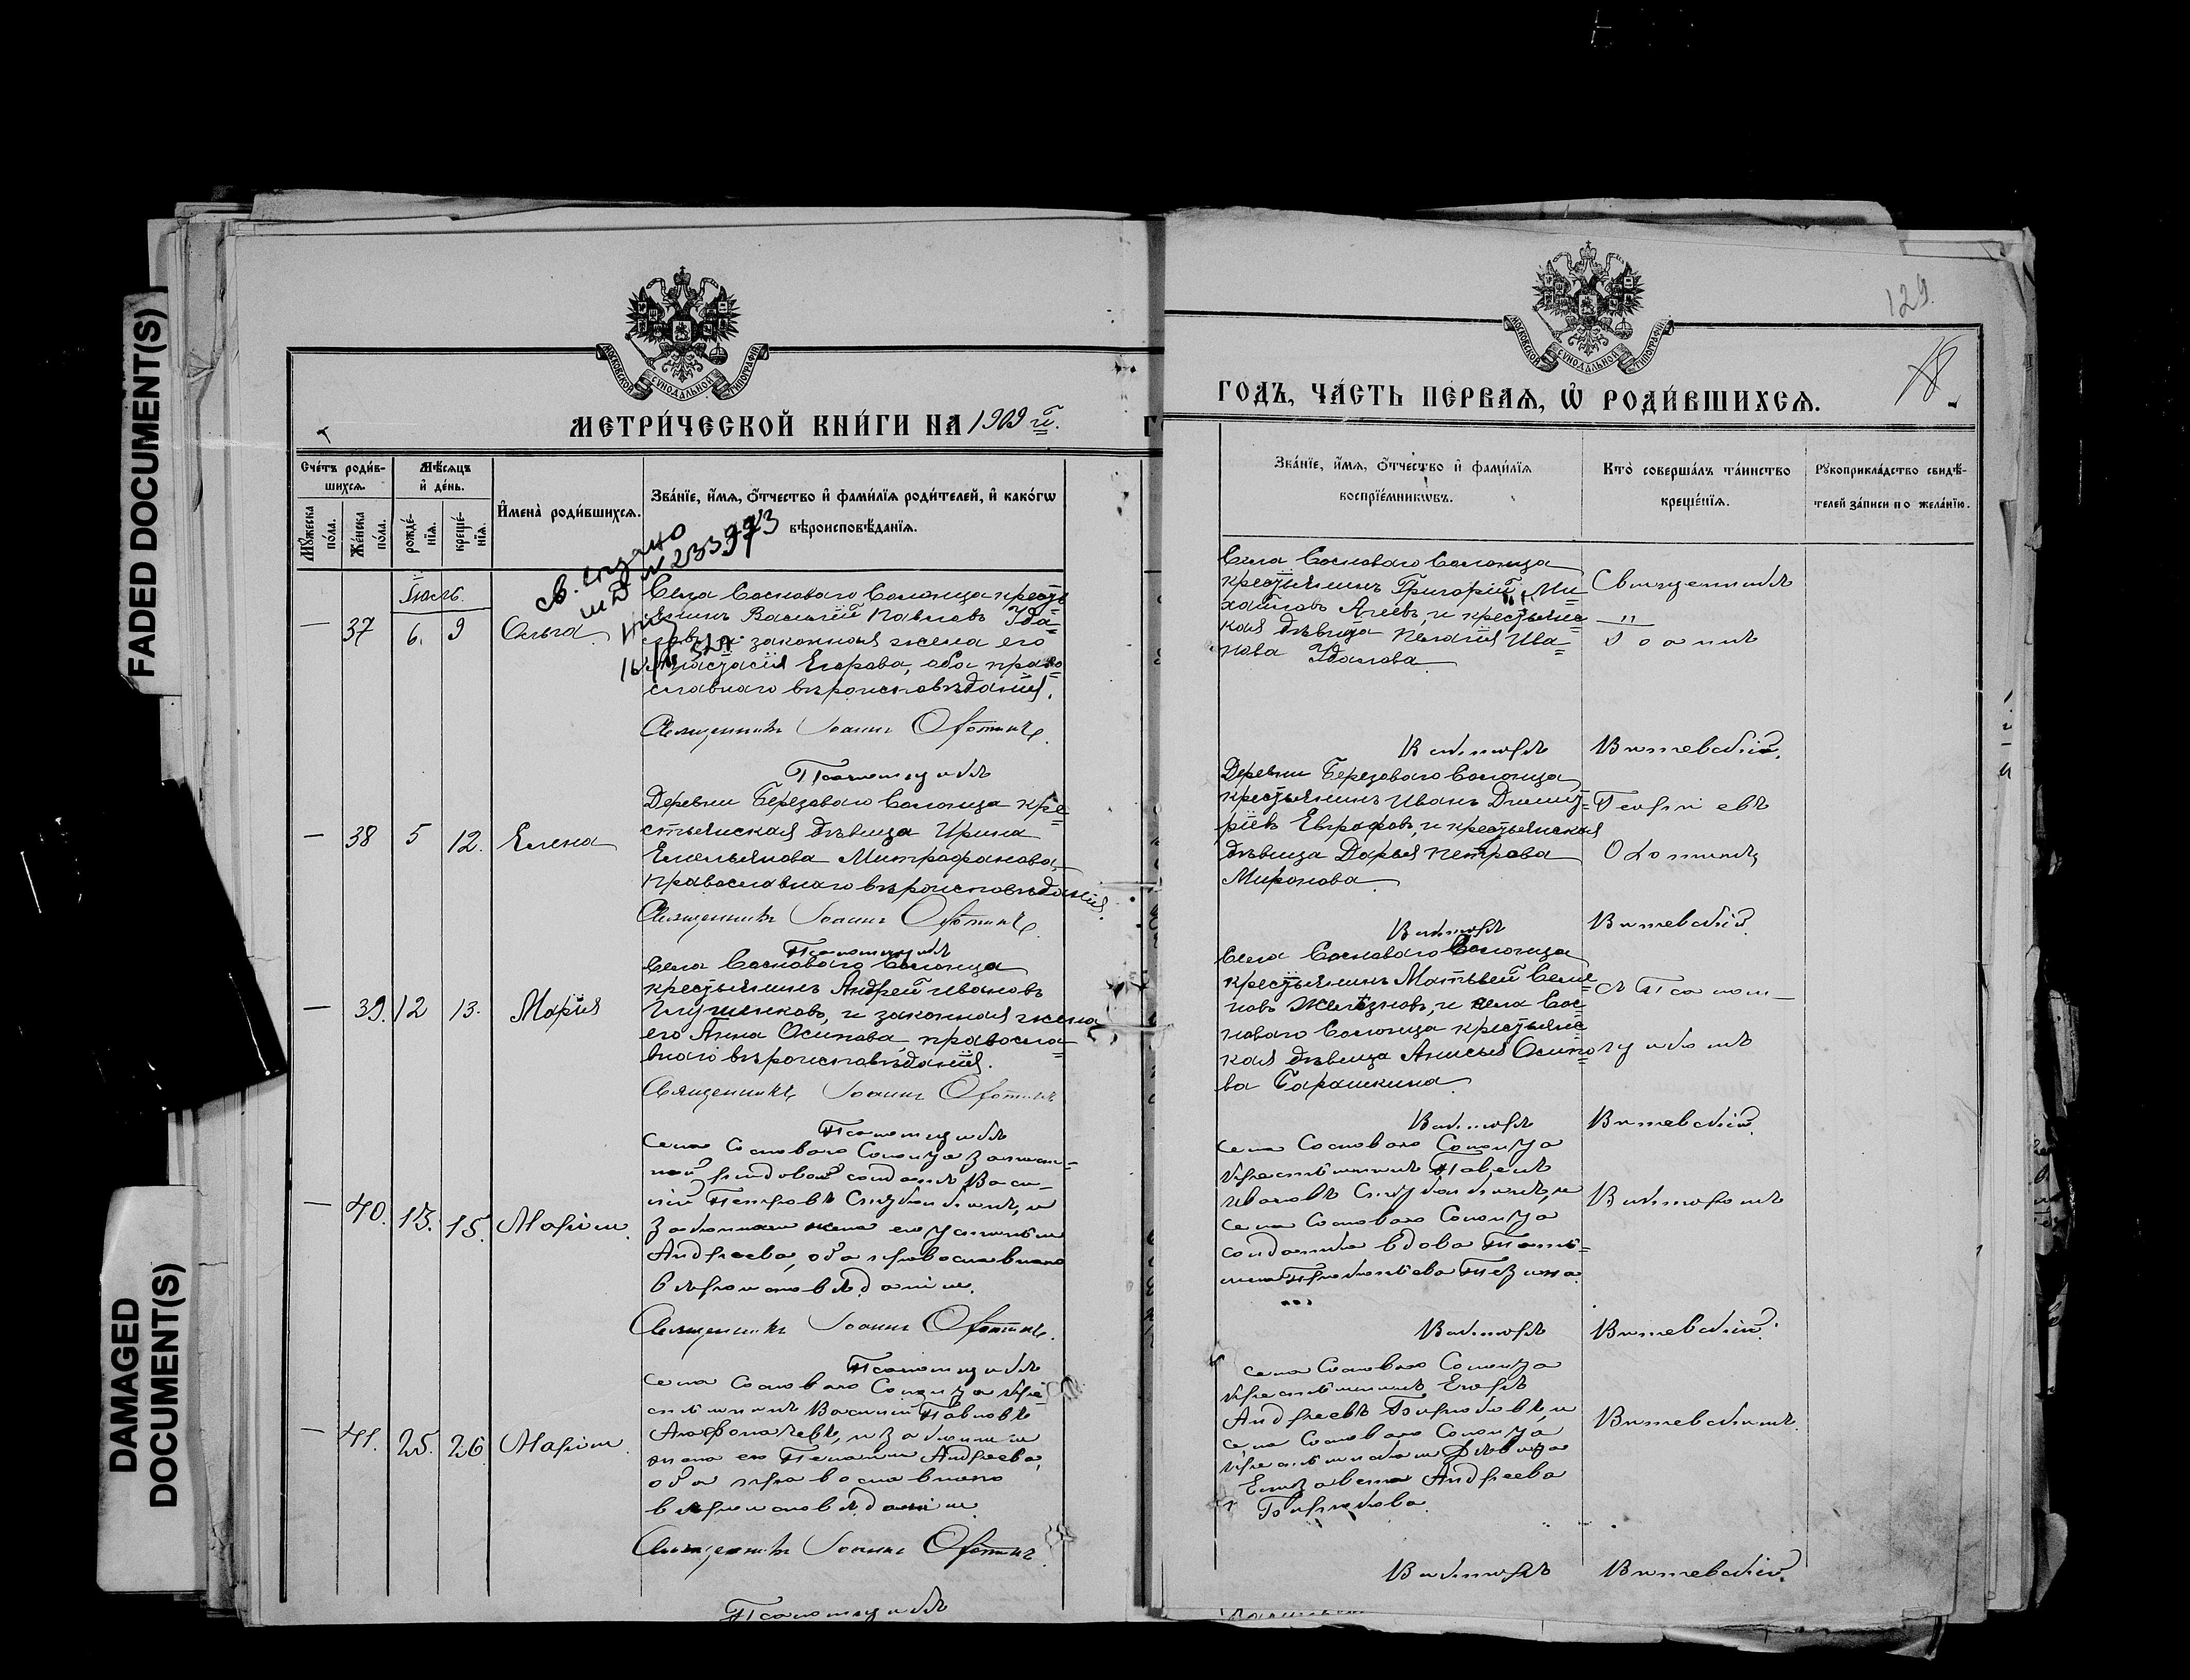 FADED DOCUMENT(S)
DAMAGED
DOCUMENT(S)
МОСКОВСКОЙ СУНОДАЛЬНОЙ ТИПОГРАФІИ
МЕТРИ́ЧЕСКОЙ КНИ́ГИ НА 1909 й.
Сче́тъ роди́в-
шихсѧ.
Мѣ́сѧцъ
и҆ де́нь.
Мꙋ́жеска
по́ла.
Же́нска
по́ла.
рожде́-
нїѧ.
креще́-
нїѧ.
И҆мена̀ роди́вшихсѧ.
Зва́нїе, и҆́мѧ, ѻ҆́тчество и҆ фами́лїѧ роди́телей, и҆ како́гѡ
вѣроисповѣ́данїѧ.
св. выдано
№ 233973
Іюль.
— 37 6. 9 Ольга
Села Сосноваго Солонца кресть
янинъ Василій Павловъ Уда=
ловъ и законная жена его
Анастасія Егорова, оба право
славнаго вѣроисповѣданія.
Священникъ Іоаннъ
Псаломщикъ
— 38 5 12. Елена
Деревни Березоваго Солонца кре=
стьянская дѣвица Ирина
Емельянова Митрофанова,
православнаго вѣроисповѣданія.
Священникъ Іоаннъ
Псаломщикъ
— 39. 12 13. Марія
Села Сосноваго Солонца
крестьянинъ Андрей Ивановъ
Глушенковъ, и законная жена
его Анна Осипова, правосла=
внаго вѣроисповѣданія.
Священникъ Іоаннъ
Псаломщикъ
— 40. 13. 15. Марія.
Села Сосноваго Солонца запас=
ной рядовой солдатъ Васи-
лій Петровъ и
законная жена его
Андреева, оба православнаго
вѣроисповѣданія.
Священникъ Іоаннъ
Псаломщикъ
— 41. 25. 26 Марія.
Села Сосноваго Солонца кре
стьянинъ Василій Павловъ
и законная
жена его Пелагія Андреева,
оба православнаго
вѣроисповѣданія.
Священникъ Іоаннъ
Псаломщикъ
129.
МОСКОВСКОЙ СУНОДАЛЬНОЙ ТИПОГРАФІИ
ГОДЪ, ЧА́СТЬ ПЕ́РВАѦ, Ѡ҆ РОДИ́ВШИХСѦ.
Зва́нїе, и҆́мѧ, ѻ҆́тчество и҆ фами́лїѧ
воспрїе́мникѡвъ.
Кто̀ соверша́лъ та́инство
креще́нїѧ.
Рꙋкоприкла́дство свидѣ́-
телей за́писи по жела́нїю.
Села Сосноваго Солонца
крестьянинъ Григорій Ми=
хайловъ Агеевъ, и крестьянс=
кая дѣвица Пелагія Ива=
нова Удалова
Священникъ
Іоаннъ
Викторъ Вишевскій.
Деревни Березоваго Солонца
крестьянинъ Иванъ Димит=
ріевъ Евграфовъ, и крестьянская
дѣвица Дарья Петрова
Миронова
Викторъ Вишевскій.
Села Сосноваго Солонца
крестьянинъ Матвей Семе=
новъ Желѣзновъ, и села Сос=
новаго Солонца крестьянс=
кая дѣвица Анисья Осипо
ва Барашкина
съ Псалом-
щикомъ
Викторъ Вишевскій.
Села Сосноваго Солонца
крестьянинъ Павелъ
Ивановъ и
села Сосноваго Солонца
солдатка вдова
Викторомъ
Викторъ Вишевскій.
Села Сосноваго Солонца
крестьянинъ Егоръ
Андреевъ Бирюковъ, и
села Сосноваго Солонца
крестьянская дѣвица
Елизавета Андреева
Бирюкова.
Вишевскимъ.
Викторъ Вишевскій.